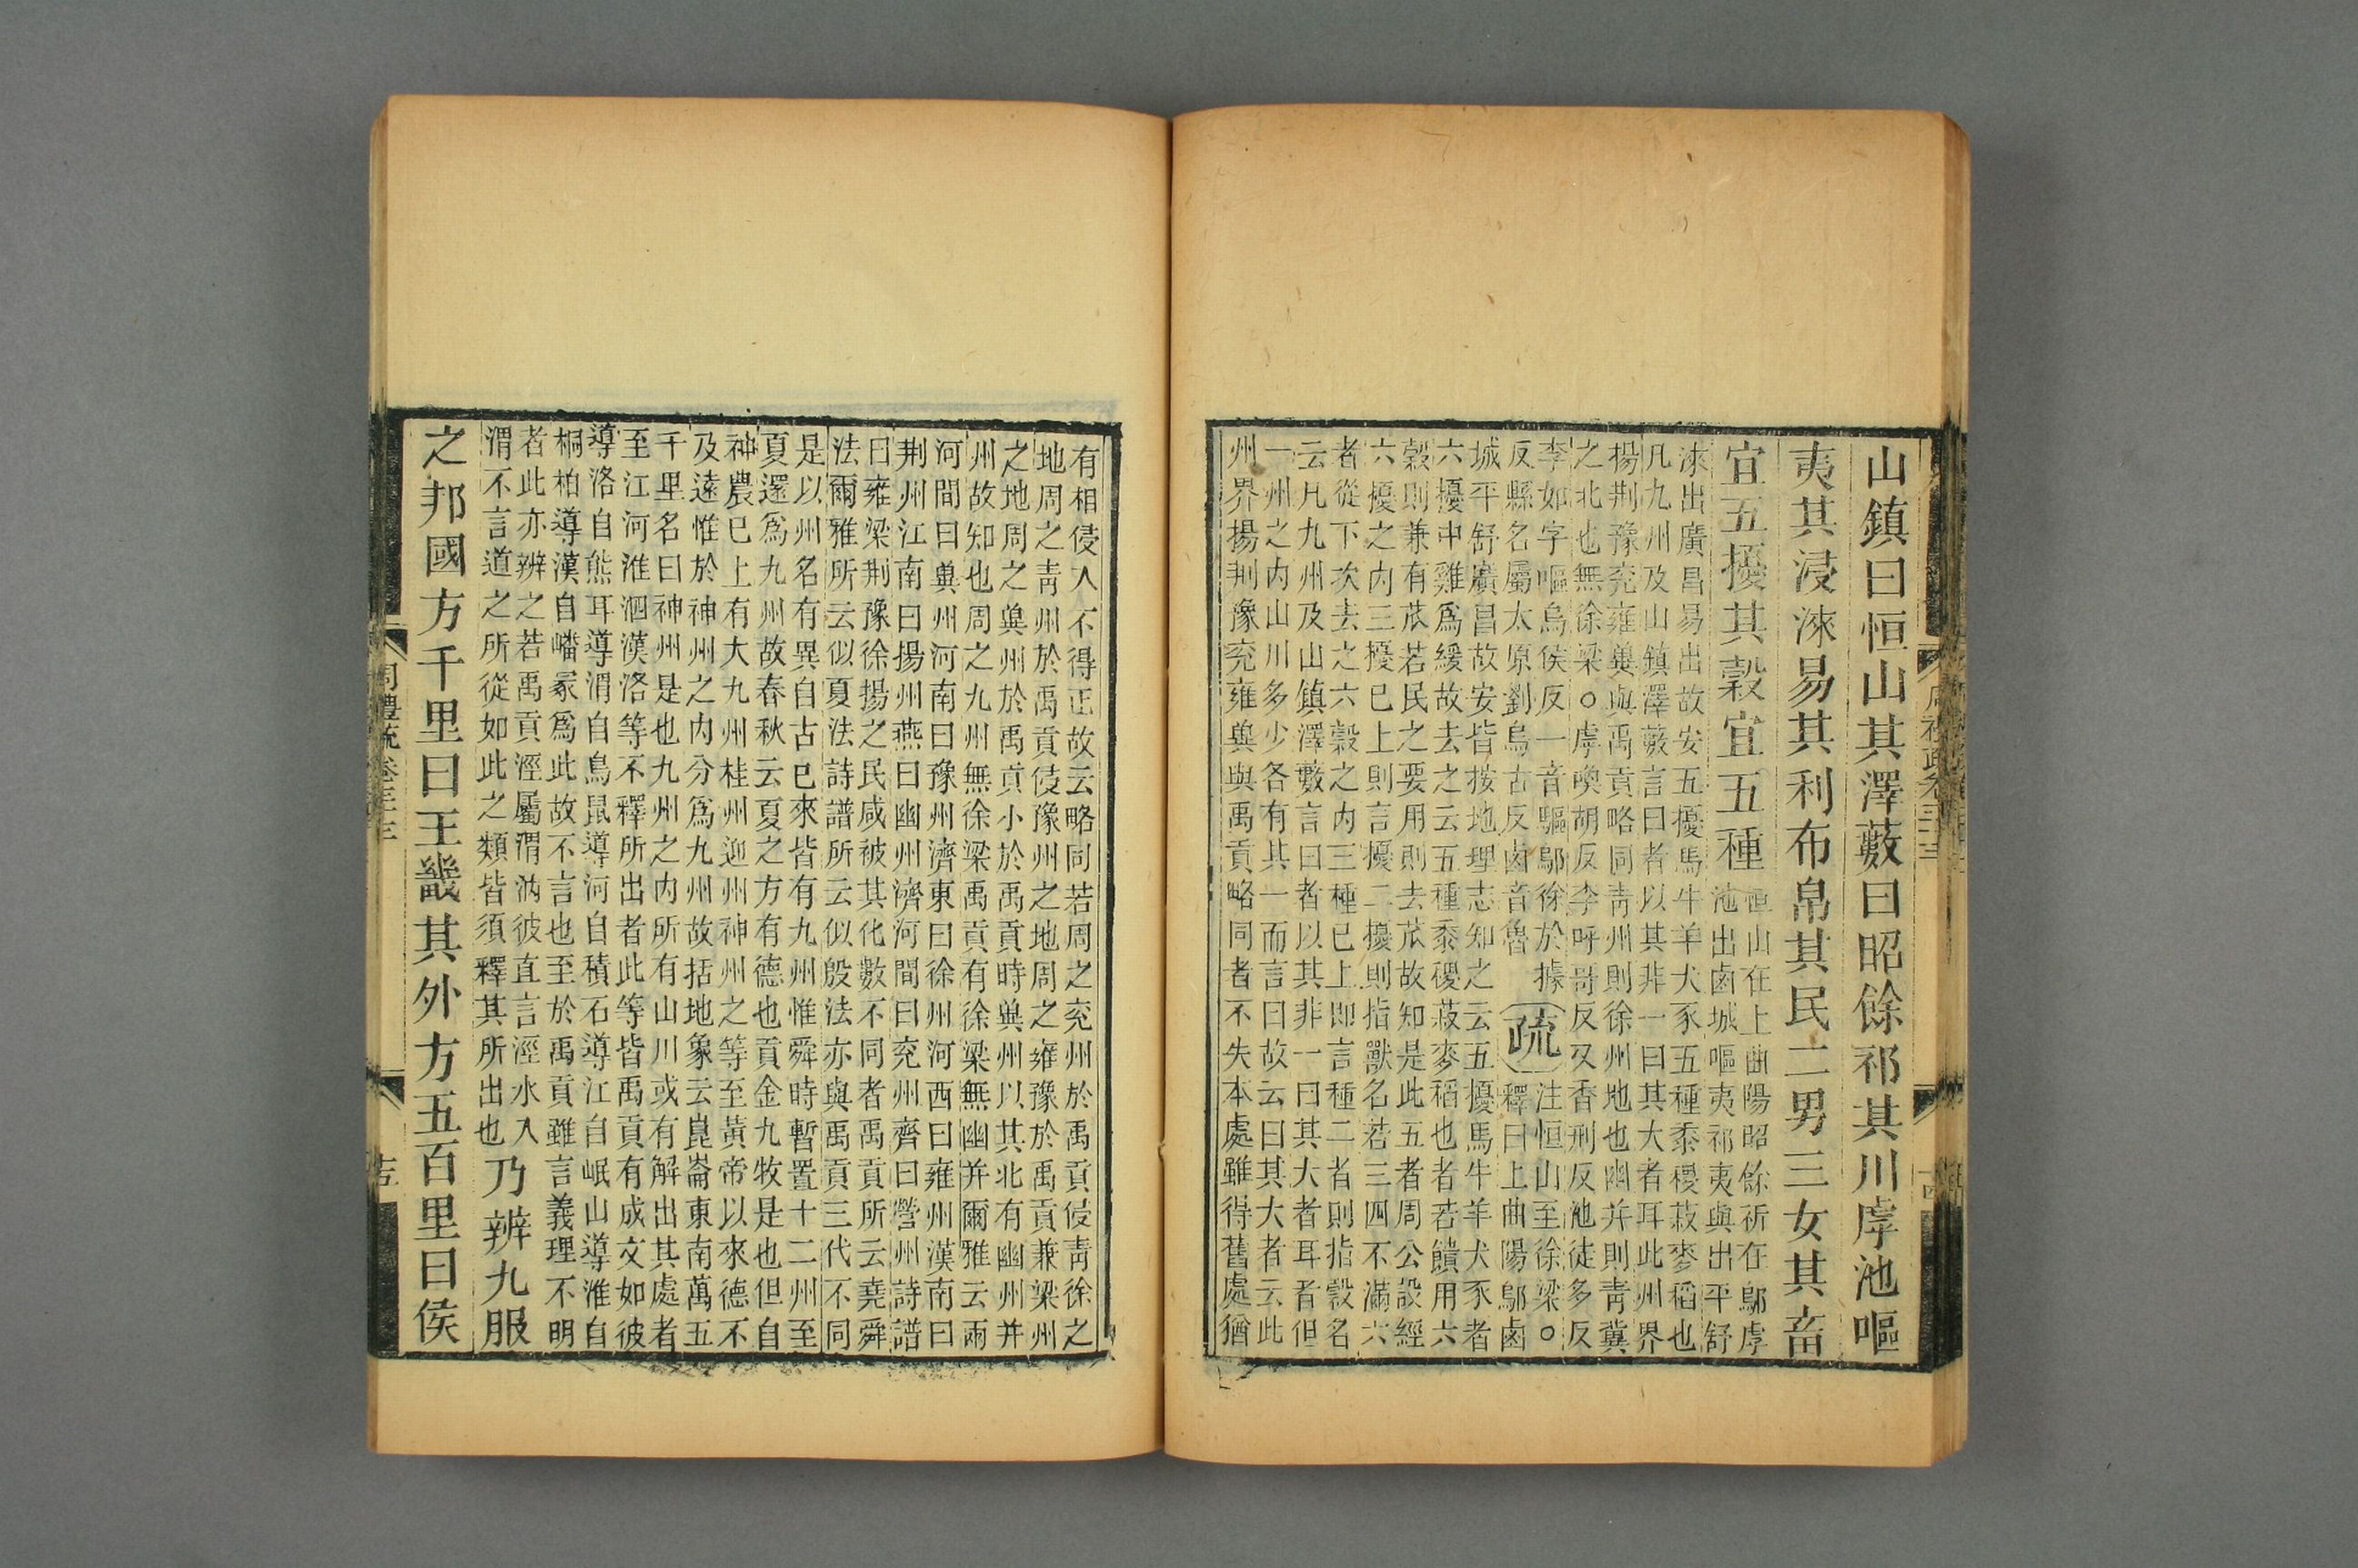 山鎮曰恒山其澤藪曰昭餘祁其川虖池嘔
夷其浸淶易其利布帛其民二男三女其畜
宜五擾其穀宜五種
恒山在上曲陽昭餘祈在鄔虖
池出鹵城嘔夷祁夷與出平舒
淶出廣昌易出故安五擾馬牛羊犬豕五種黍稷菽麥稻也
凡九州及山鎮澤藪言曰者以其非一曰其大者耳此州界
揚荆豫兖雍冀與禹貢略同青州則徐州地也幽并則青冀
之北也無徐梁○虖喚胡反李呼哥反又香刑反池徒多反
李如字嘔烏侯反一音驅鄔徐於據
反縣名屬太原劉烏古反鹵音魯
疏
注恒山至徐梁○
釋曰上曲陽鄔鹵
城平舒廣昌故安皆按地理志知之云五擾馬牛羊犬豕者
六擾中雞爲緩故去之云五種黍稷菽麥稻也者若饋用六
穀則兼有苽若民之要用則去苽故知是此五者周公設經
六擾之內三擾已上則言擾二擾則指獸名若三四不滿六
者從下次去之六穀之內三種已上即言種二者則指穀名
云凡九州及山鎮澤藪言曰者以其非一曰其大者耳者但
一州之內山川多少各有其一而言曰故云曰其大者云此
州界揚荆豫兖雍冀與禹貢略同者不失本處雖得舊處猶
周禮疏卷三十三
有相侵入不得正故云略同若周之兖州於禹貢侵青徐之
地周之青州於禹貢侵豫州之地周之雍豫於禹貢兼梁州
之地周之冀州於禹貢小於禹貢時冀州以其北有幽州并
州故知也周之九州無徐梁禹貢有徐梁無幽并爾雅云兩
河間曰冀州河南曰豫州濟東曰徐州河西曰雍州漢南曰
荆州江南曰揚州燕曰幽州濟河間曰兖州齊曰營州詩譜
曰雍梁荆豫徐揚之民咸被其化數不同者禹貢所云堯舜
法爾雅所云似夏法詩譜所云似殷法亦與禹貢三代不同
是以州名有異自古已來皆有九州惟舜時暫置十二州至
夏還爲九州故春秋云夏之方有德也貢金九牧是也但自
神農已上有大九州桂州迎州神州之等至黃帝以來德不
及遠惟於神州之內分爲九州故括地象云崑崙東南萬五
千里名曰神州是也九州之內所有山川或有解出其處者
至江河淮泗漢洛等不釋所出者此等皆禹貢有成文如彼
導洛自熊耳導渭自鳥鼠導河自積石導江自岷山導淮自
桐柏導漢自嶓冢爲此故不言也至於禹貢雖言義理不明
者此亦辨之若禹貢涇屬渭汭彼直言涇水入
渭不言道之所從如此之類皆須釋其所出也
乃辨九服
之邦國方千里曰王畿其外方五百里曰侯
周禮疏卷三十三